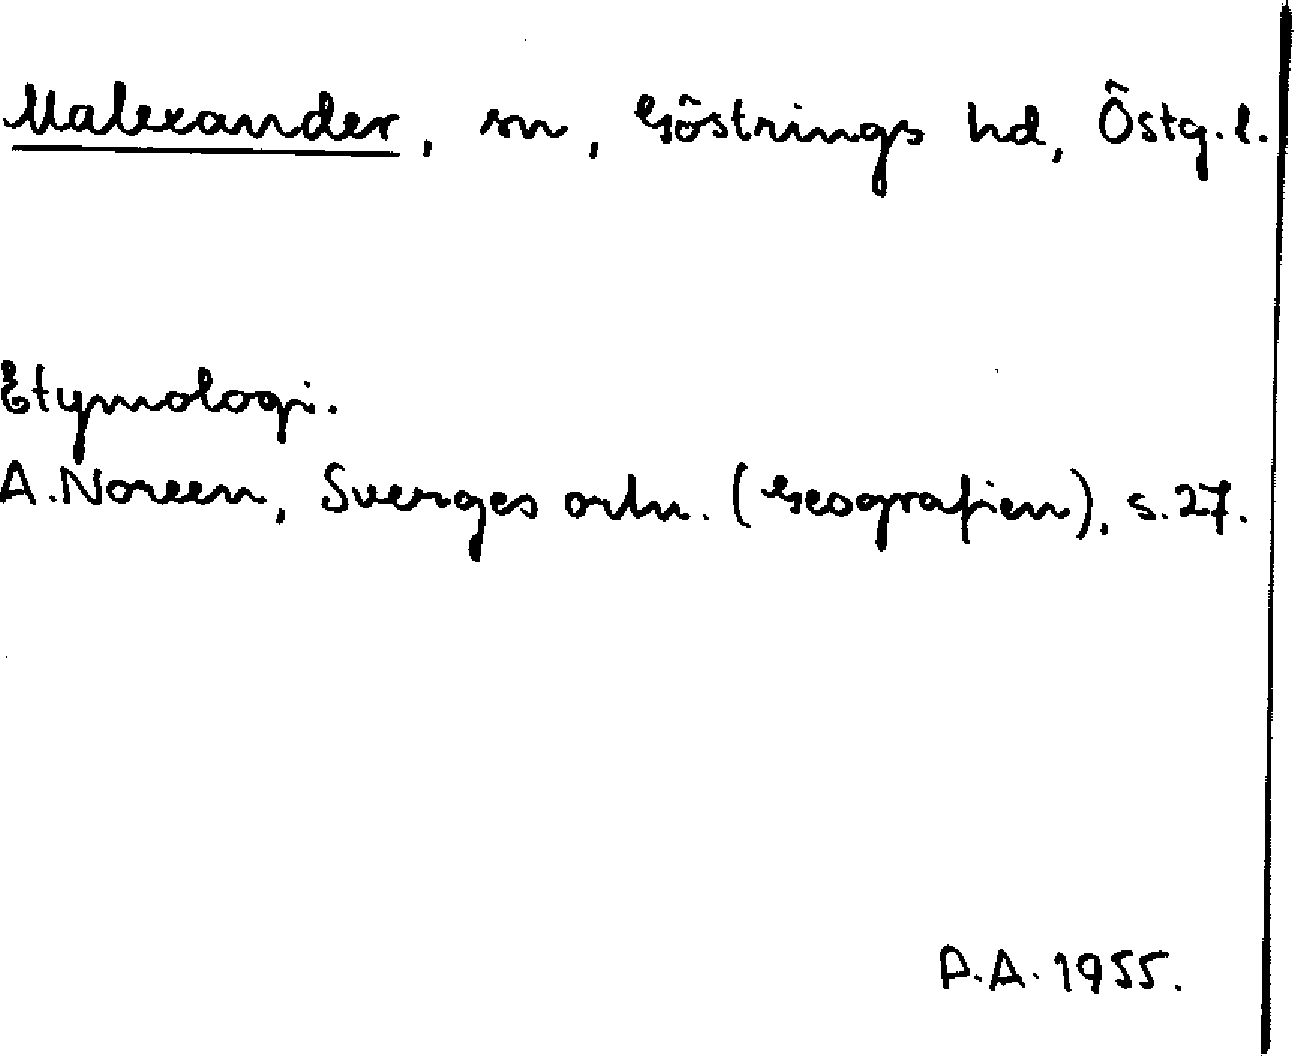 Malexander, sn, Göstrings hd, Östg.l.
Etymologi.
A. Noreen, Sveriges ortn. (Geografien), s. 27.
A.A. 1955.